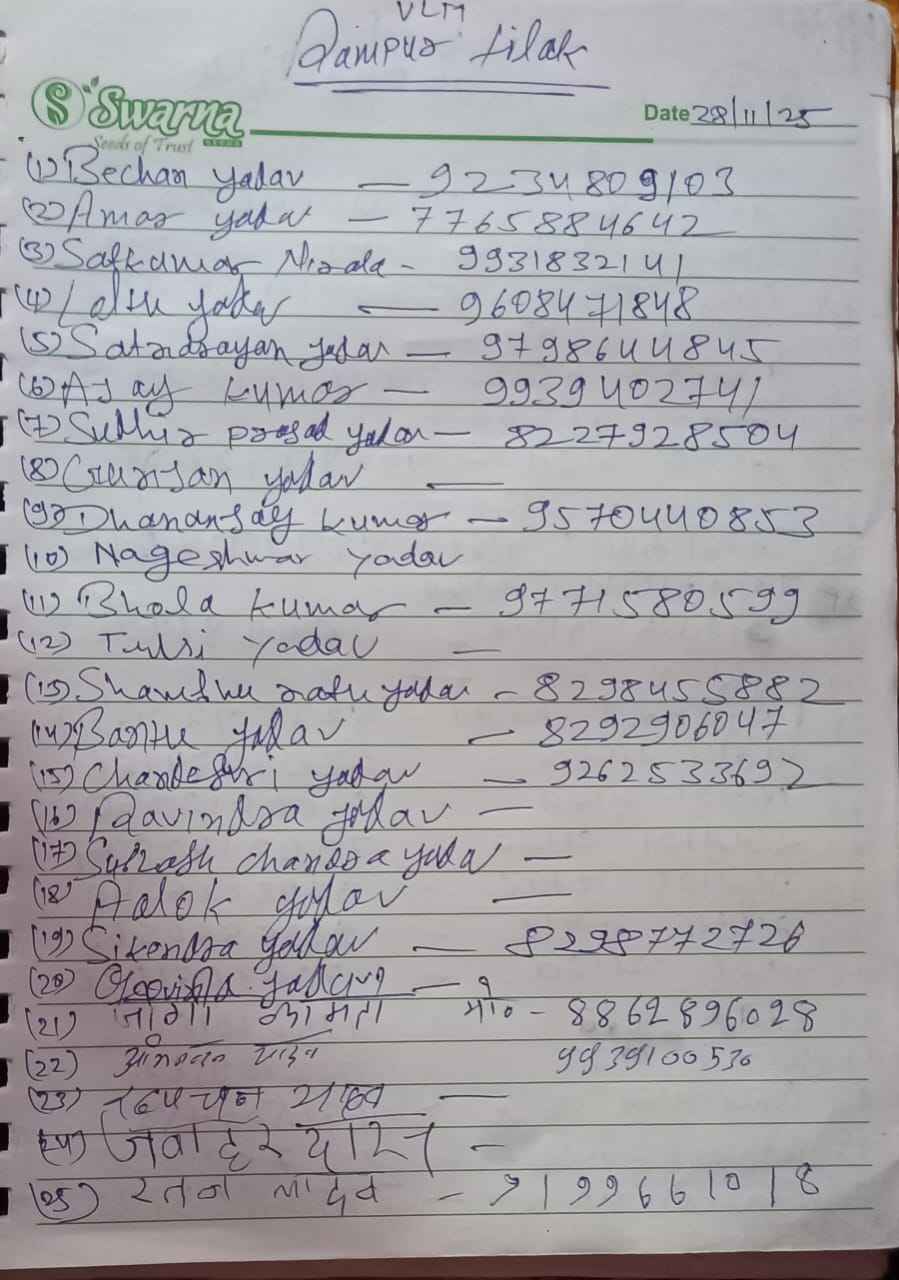 VLM
Rampur tilak
S Swarna
Seeds of Trust
Date 28/11/25
(1) Bechan yadav — 9234809103
(2) Amar yadav — 7765884642
(3) Satkumar Nirala - 9931832141
(4) Laltu yadav — 9608471848
(5) Satnarayan yadav — 9798644845
(6) AJay kumar — 9939402741
(7) Sudhir prasad yadav — 8227928504
(8) Gunjan yadav —
(9) Dhananjay kumar — 9570440853
(10) Nageshwar yadav
(11) Bhola kumar — 9771580599
(12) Tulsi yadav —
(13) Shambhu nath yadav - 8298455882
(14) Bantu yadav — 8292906047
(15) Chandeswri yadav — 9262533692
(16) Ravindra yadav —
(17) Subhash chandra yadav —
(18) Aalok yadav —
(19) Sikendra yadav — 8298772726
(20) Govinda yadav —
(21) मो० - 8862896028
(22) यादव 9939100530
(23) यादव —
(24) जवाहर यादव -
(25) रतन यादव - 9199661018